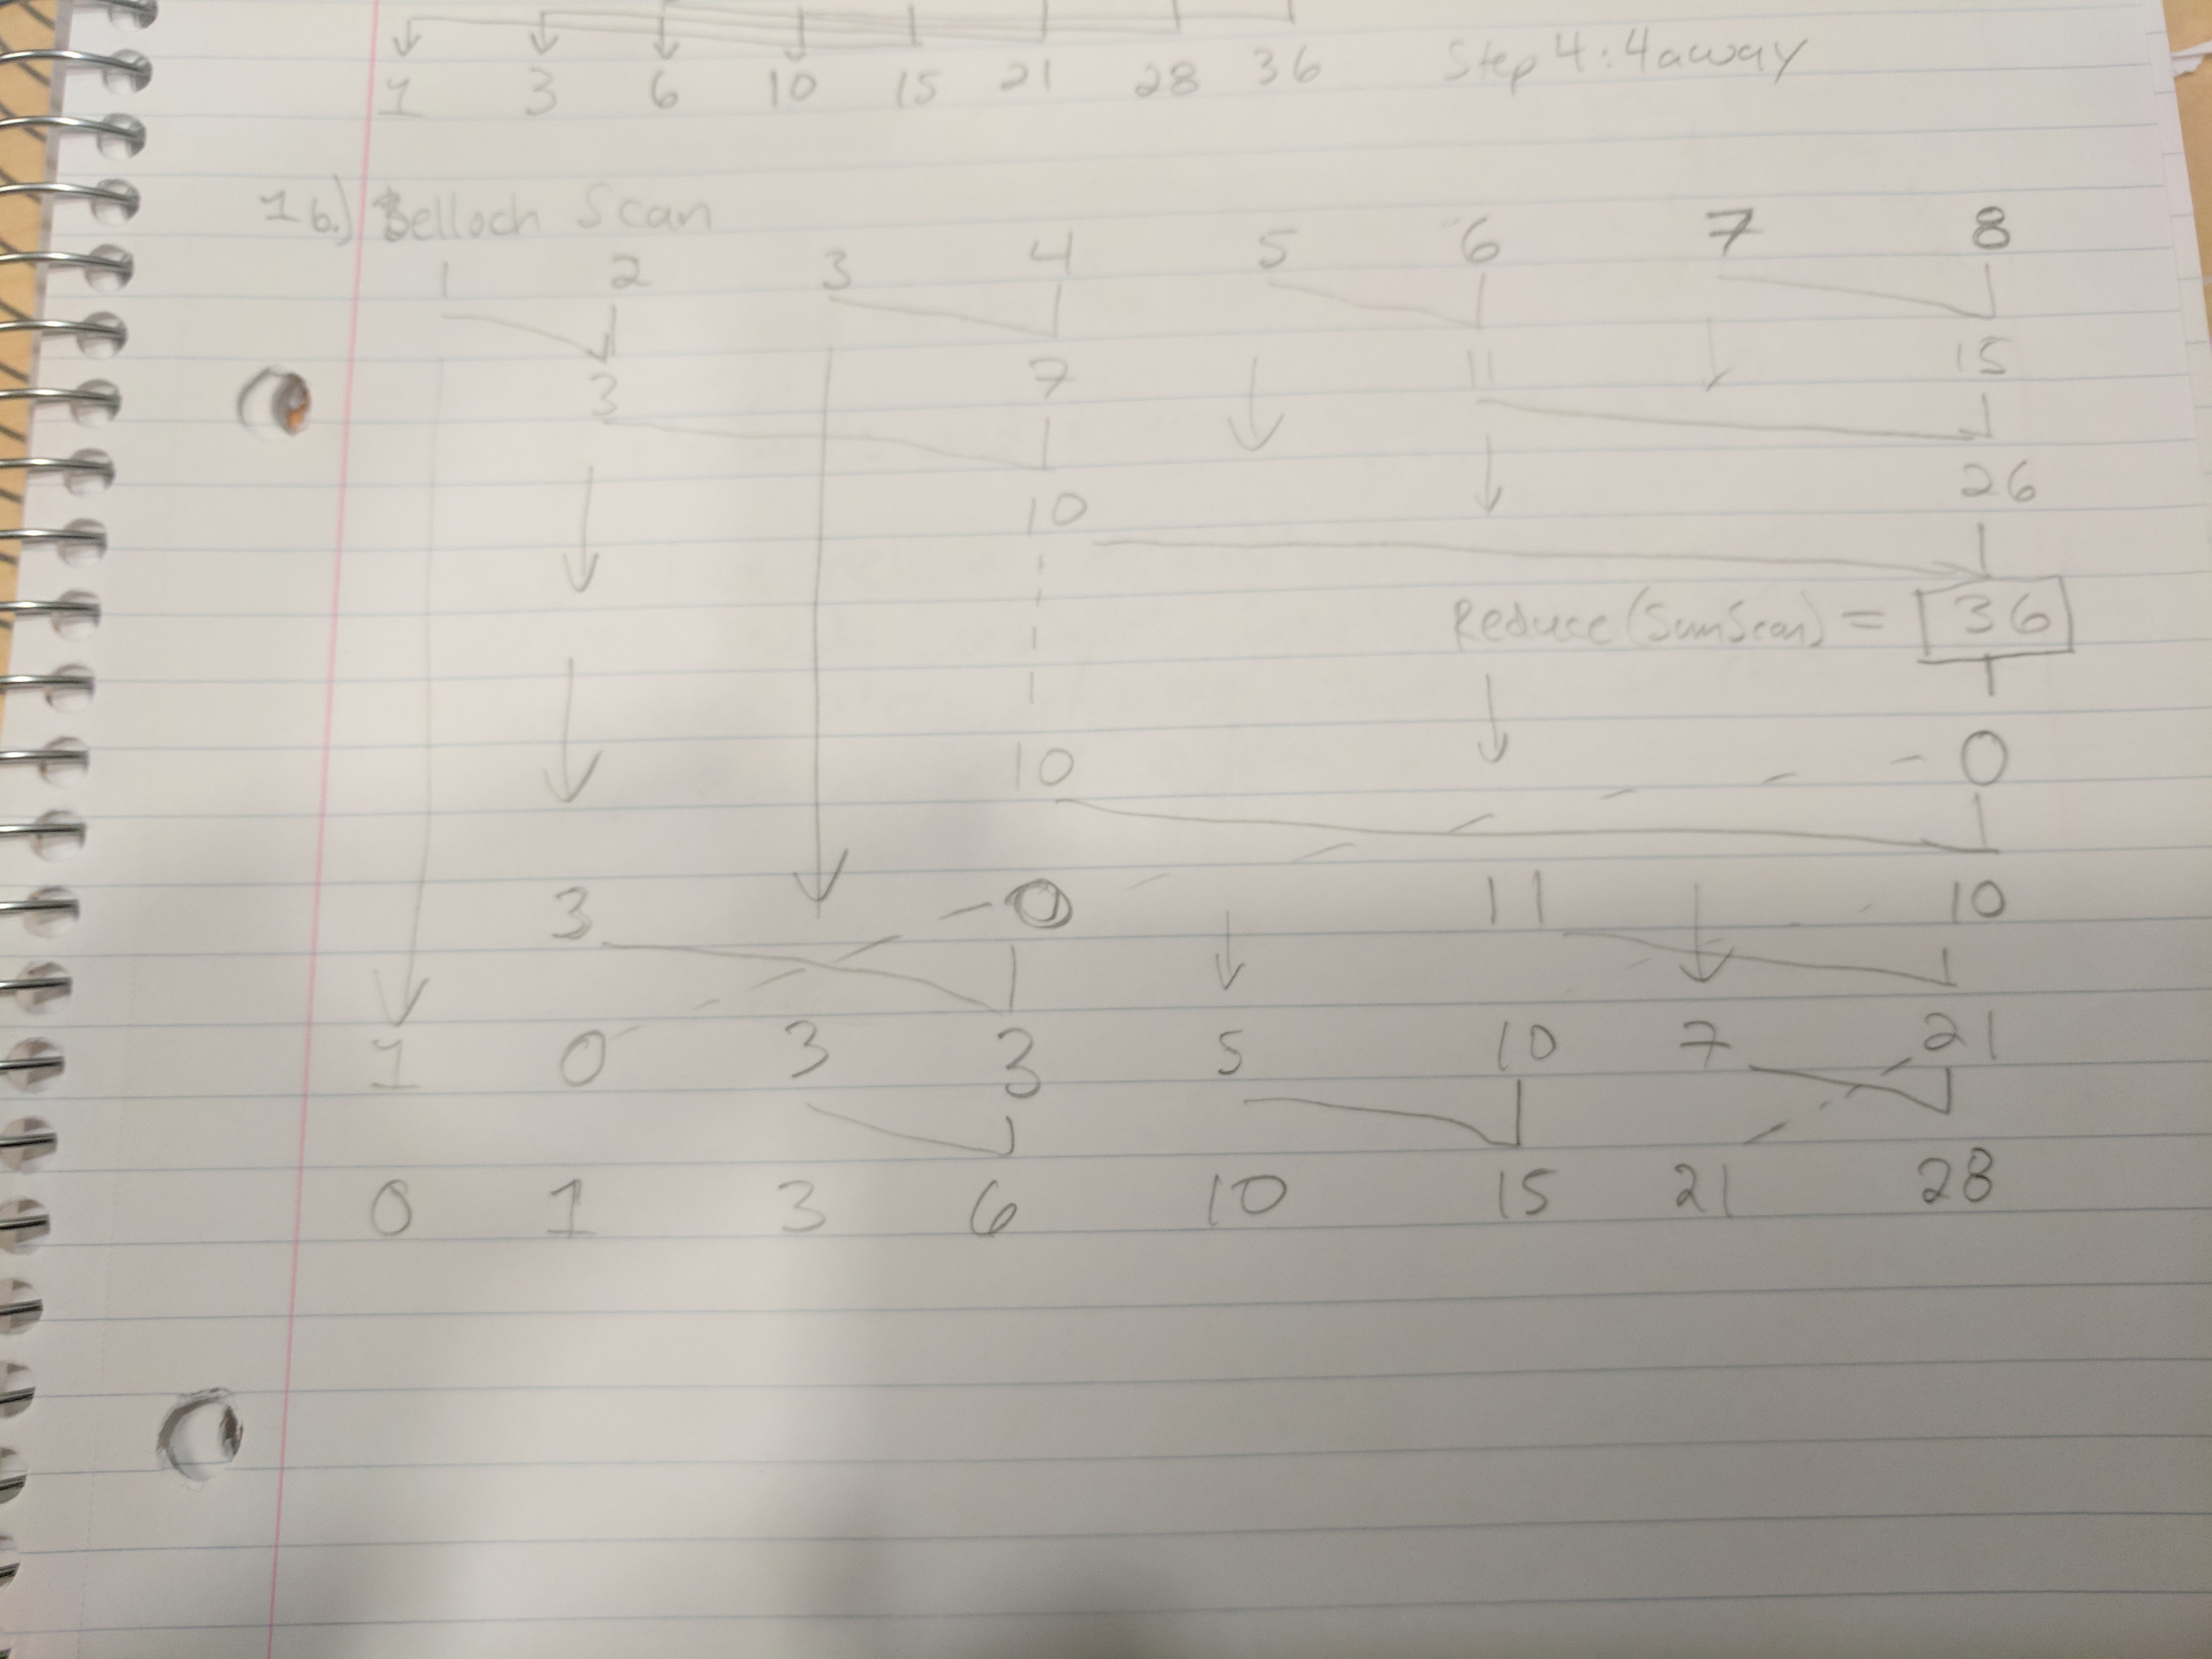 1 3 6 10 15 21 28 36 Step 4: 4away
1b.) Belloch Scan
1 2 3 4 5 6 7 8
3 7 11 15
10 26
Reduce (SumScan) = 36
10 0
3 0 11 10
1 0 3 3 5 10 7 21
0 1 3 6 10 15 21 28